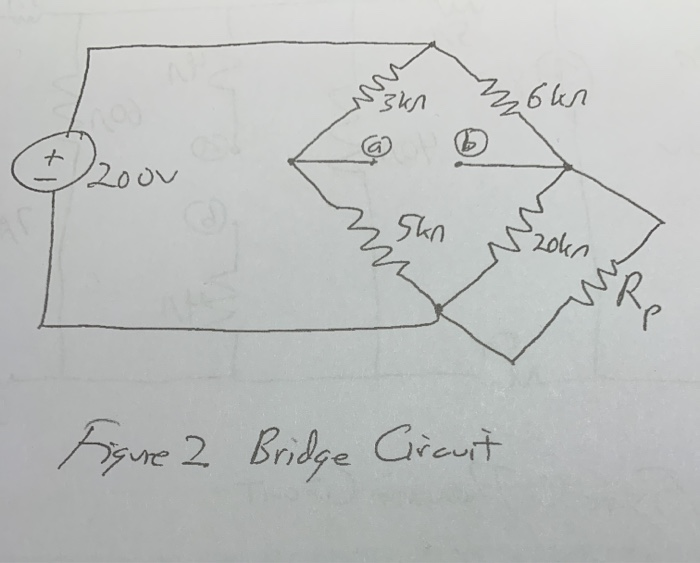 3kΩ
6kΩ
+
ⓐ
ⓑ
−
200V
5kΩ
20kΩ
Rp
Figure 2 Bridge Circuit